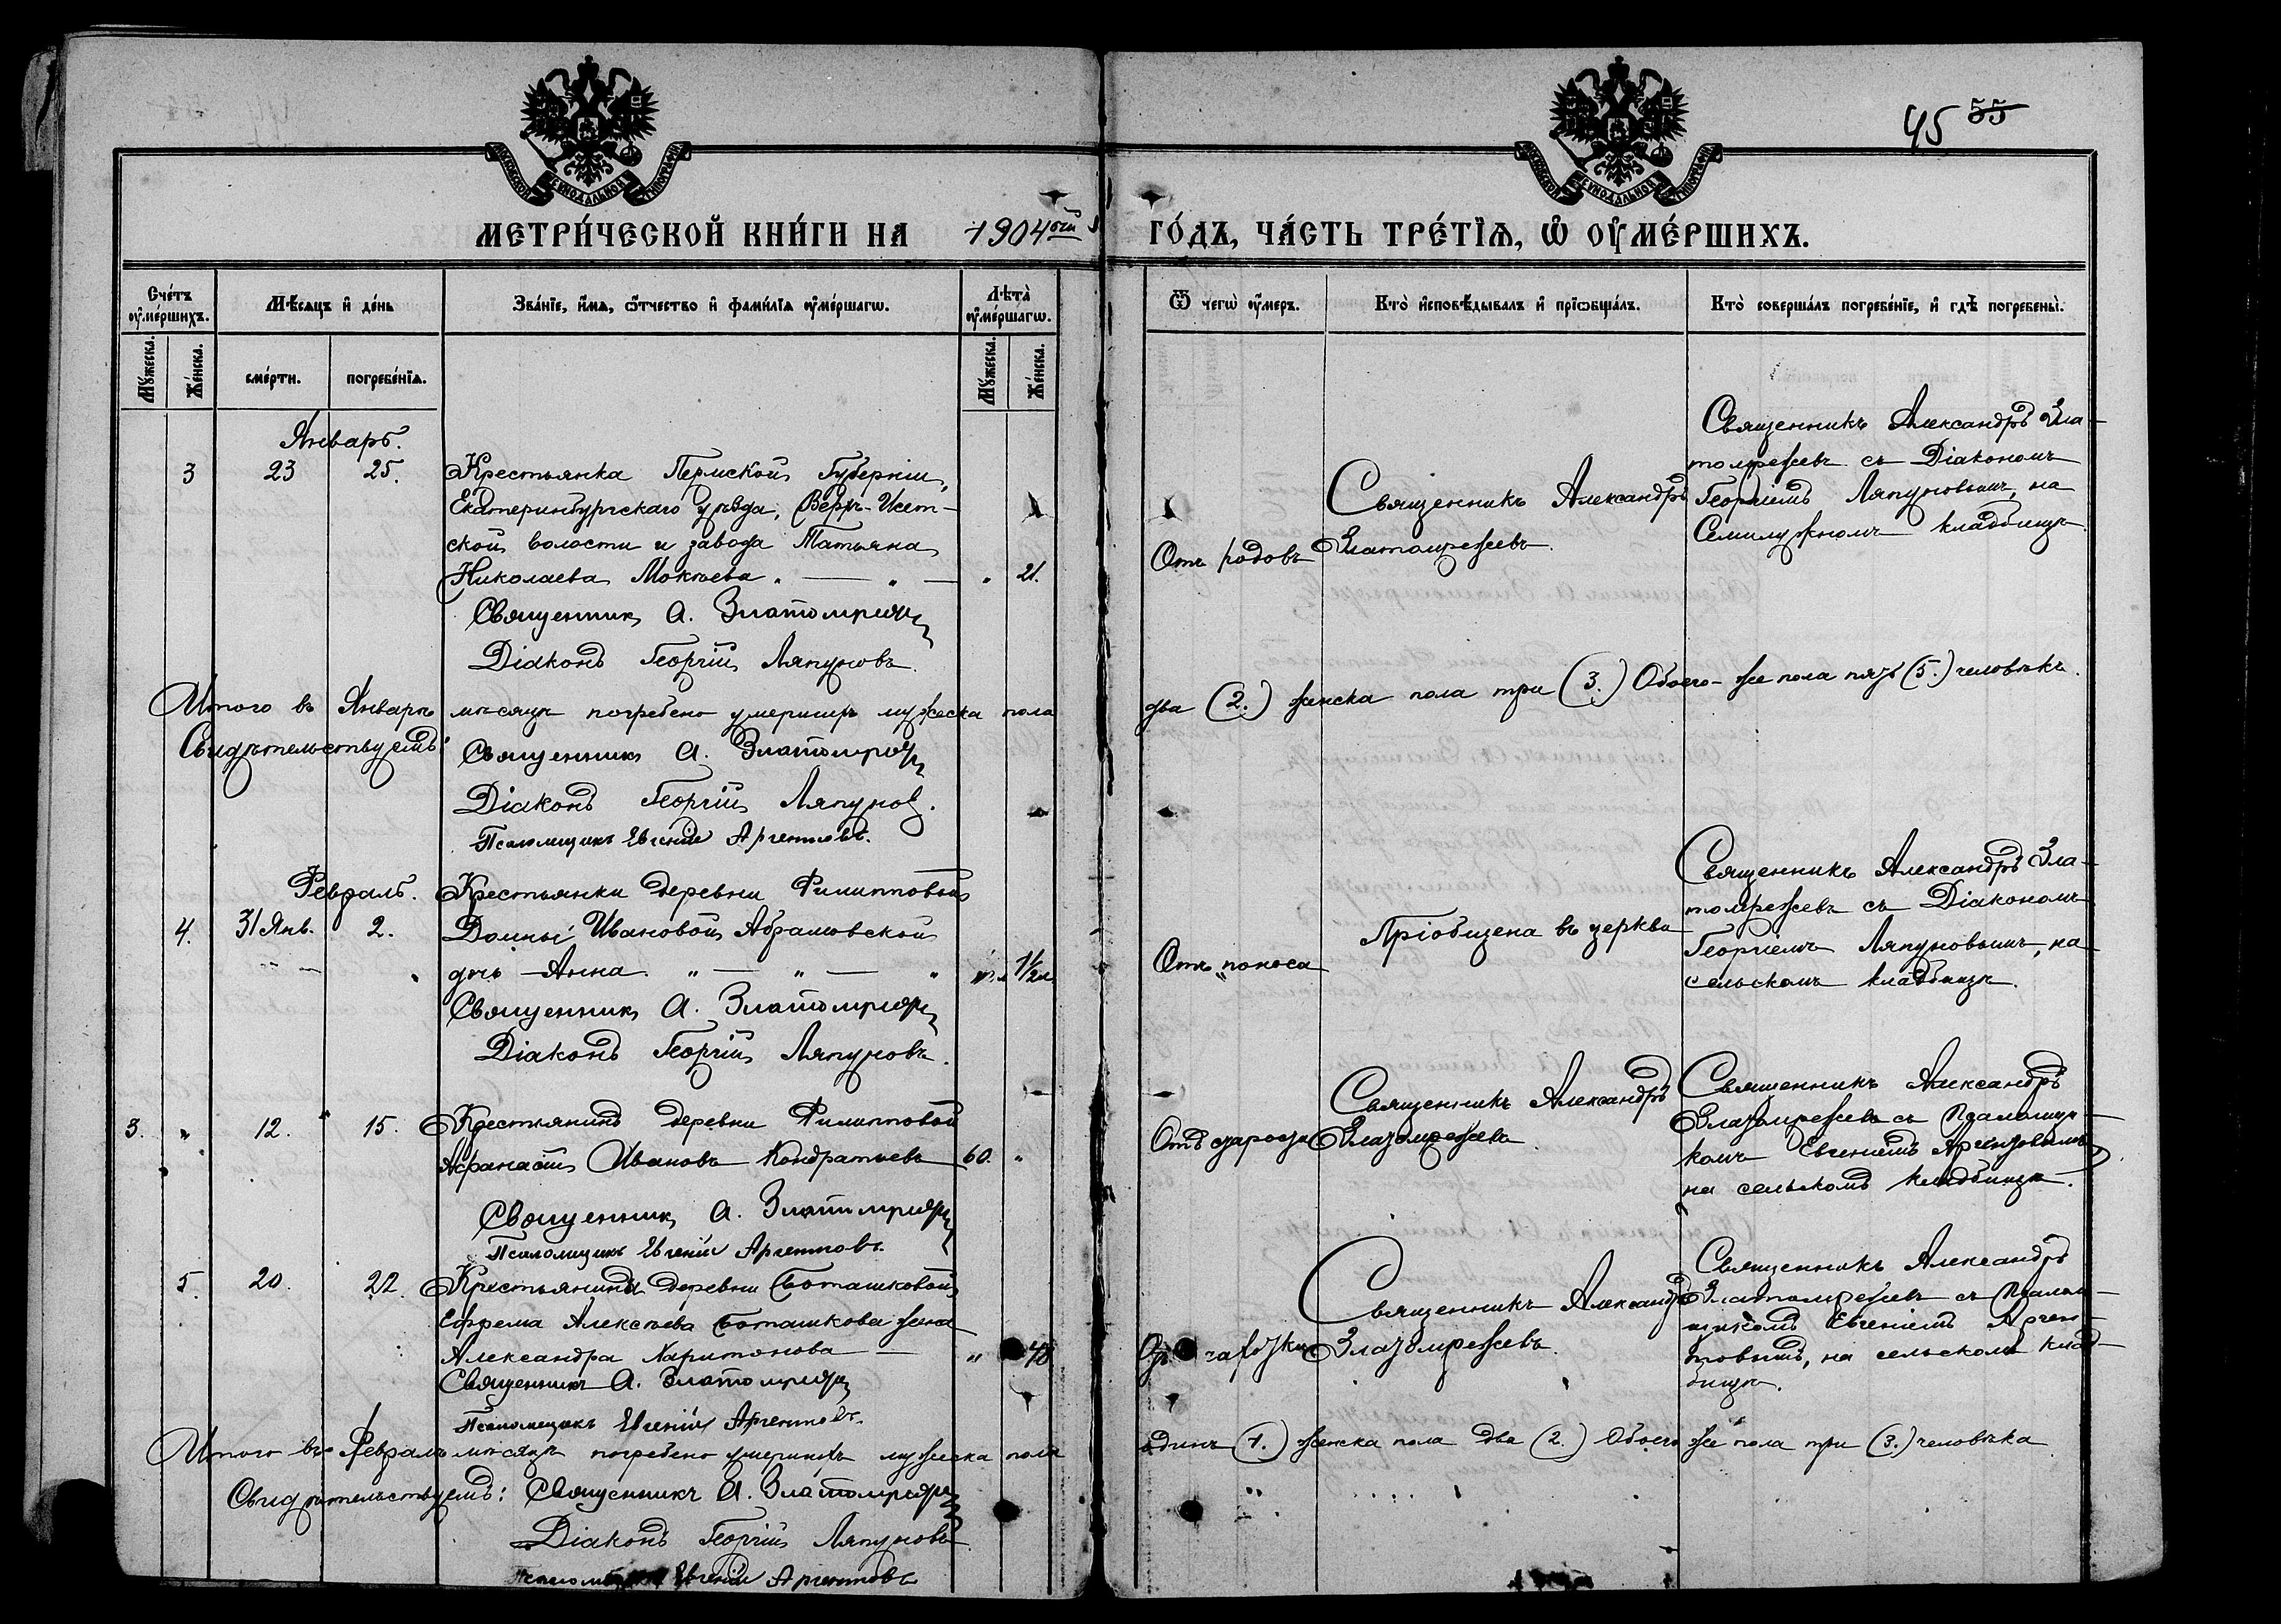 45 55
МОСКОВСКОЙ СѴНОДАЛЬНОЙ ТИПОГРАФІИ
МОСКОВСКОЙ СѴНОДАЛЬНОЙ ТИПОГРАФІИ
МЕТРИ́ЧЕСКОЙ КНИ́ГИ НА 1904ый
ГО́ДЪ, ЧА́СТЬ ТРЕ́ТІѦ, Ѡ ОУМЕ́РШИХЪ.
Сче́тъ оуме́ршихъ.
Мѣ́сяцъ и де́нь
Зва́ніе, и́мѧ, ѻ́тчество и фами́лїѧ оуме́ршагѡ.
Лѣта̀ оуме́ршагѡ.
Ѿ чегѡ̀ оу́меръ.
Кто̀ и҆сповѣ́дывалъ и прїѡбща́лъ.
Кто̀ соверша́лъ погребе́нїе, и гдѣ̀ погребены̀.
Мꙋ́жеска.
Же́нска.
сме́рти.
погребе́нїѧ.
Мꙋ́жеска.
Же́нска.
Январь.
3 23 25. Крестьянка Пермской Губерніи,
Екатеринбургскаго уѣзда, Верхъ-Исет-
ской волости и завода Татьяна
Николаева Мокѣева " — " — " 21.
Священник А.
Діаконъ Георгій Ляпуновъ.
Отъ родовъ
Священникъ Александръ
Златомрежевъ.
Священникъ Александръ Зла-
томрежевъ съ Діакономъ
Георгіемъ Ляпуновымъ, на
Семилужномъ кладбищѣ.
Итого въ Январѣ мѣсяцѣ погребено умершихъ мужеска пола
два (2.) женска пола три (3.) Обоего-же пола пять (5.) человѣкъ.
Свидѣтельствуемъ: Священник А.
Діаконъ Георгій Ляпуновъ.
Псаломщикъ Евгеній Аргентовъ.
Февраль. Крестьянки деревни Филипповой
4. 31 Янв. 2. Домны Ивановой Абрамовской
дочь — Анна. " — " — " 1½ м.
Священник А.
Діаконъ Георгій Ляпуновъ.
Отъ поноса
Пріобщена въ церкви
Священникъ Александръ Зла-
томрежевъ съ Діакономъ
Георгіемъ Ляпуновымъ, на
сельскомъ кладбищѣ.
3. " 12. 15. Крестьянинъ деревни Филипповой
Афанасій Ивановъ Кондратьевъ 60. "
Священник А.
Псаломщикъ Евгеній Аргентовъ.
Отъ старости
Священникъ Александръ
Златомрежевъ.
Священникъ Александръ
Златомрежевъ съ Псаломщи-
комъ Евгеніемъ Аргентовымъ
на сельскомъ кладбищѣ.
5. 20. 22. Крестьянина деревни Боташковой
Ефрема Алексѣева Боташкова жена
Александра Харитонова — " 48
Священникъ А.
Псаломщикъ Евгеній Аргентовъ.
Отъ чахотки
Священникъ Александръ
Златомрежевъ.
Священникъ Александръ
Златомрежевъ съ Псалом-
щикомъ Евгеніемъ Арген-
товымъ, на сельскомъ клад-
бищѣ.
Итого въ Февралѣ мѣсяцѣ погребено умершихъ мужеска пола
одинъ (1.) женска пола два (2.) Обоего же пола три (3.) человѣка
Свидѣтельствуемъ: Священникъ А.
Діаконъ Георгій Ляпуновъ
Евгеній Аргентовъ